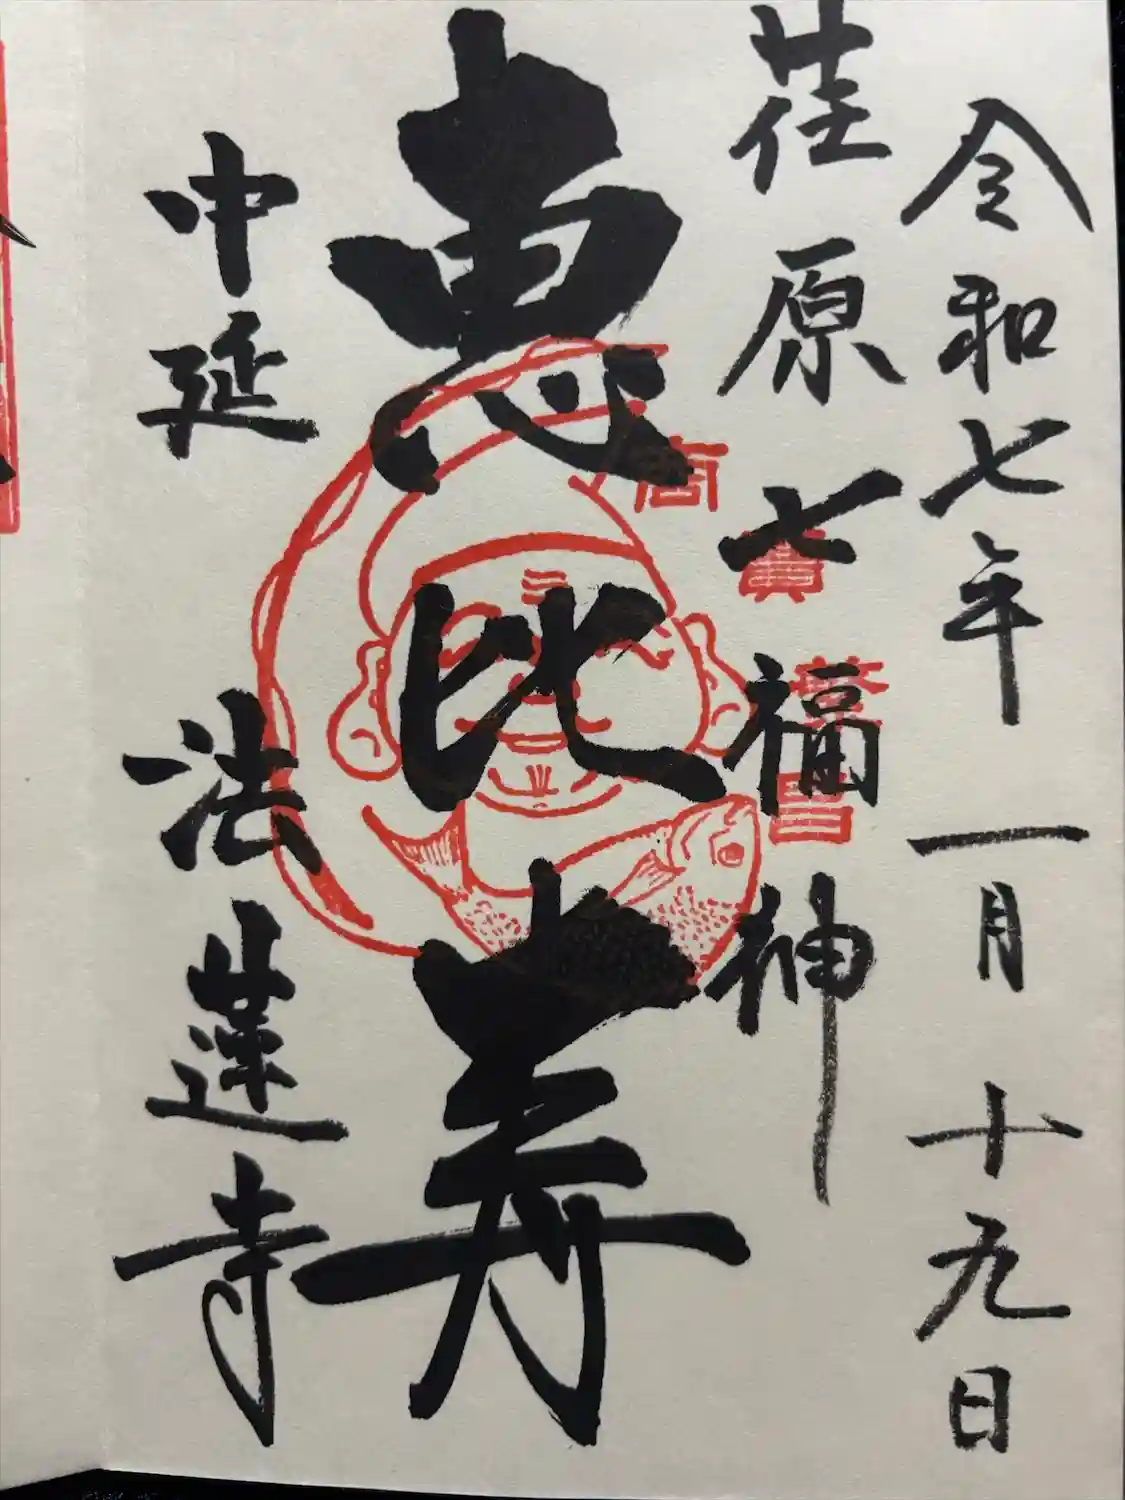 令和七年一月十九日
荏原七福神
恵比寿
商賣繁昌
中延 法蓮寺